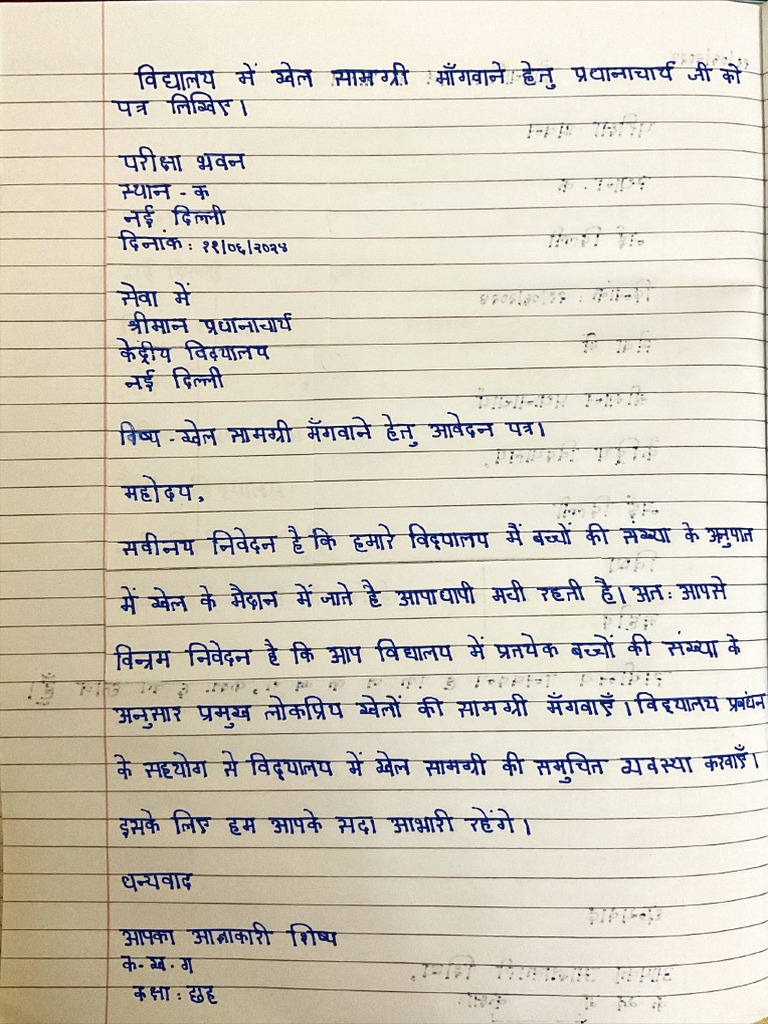 विद्यालय में खेल सामग्री माँगवाने हेतु प्रधानाचार्य जी को
पत्र लिखिए।
परीक्षा भवन
स्थान - क
नई दिल्ली
दिनांक : ११/०६/२०२४
सेवा में
श्रीमान प्रधानाचार्य
केंद्रीय विद्यालय
नई दिल्ली
विष्य - खेल सामग्री मँगवाने हेतु आवेदन पत्र।
महोदय,
सवीनय निवेदन है कि हमारे विद्यालय में बच्चों की संख्या के अनुपात
में खेल के मैदान में जाते है आपाधापी मची रहती है। अतः आपसे
विन्रम निवेदन है कि आप विद्यालय में प्रतयेक बच्चों की संख्या के
अनुसार प्रमुख लोकप्रिय खेलों की सामग्री मँगवाएँ। विद्यालय प्रबंधन
के सहयोग से विद्यालय में खेल सामग्री की समुचित व्यवस्था करवाएँ।
इसके लिए हम आपके सदा आभारी रहेंगे।
धन्यवाद
आपका आज्ञाकारी शिष्य
क. ख. ग
कक्षा : छह